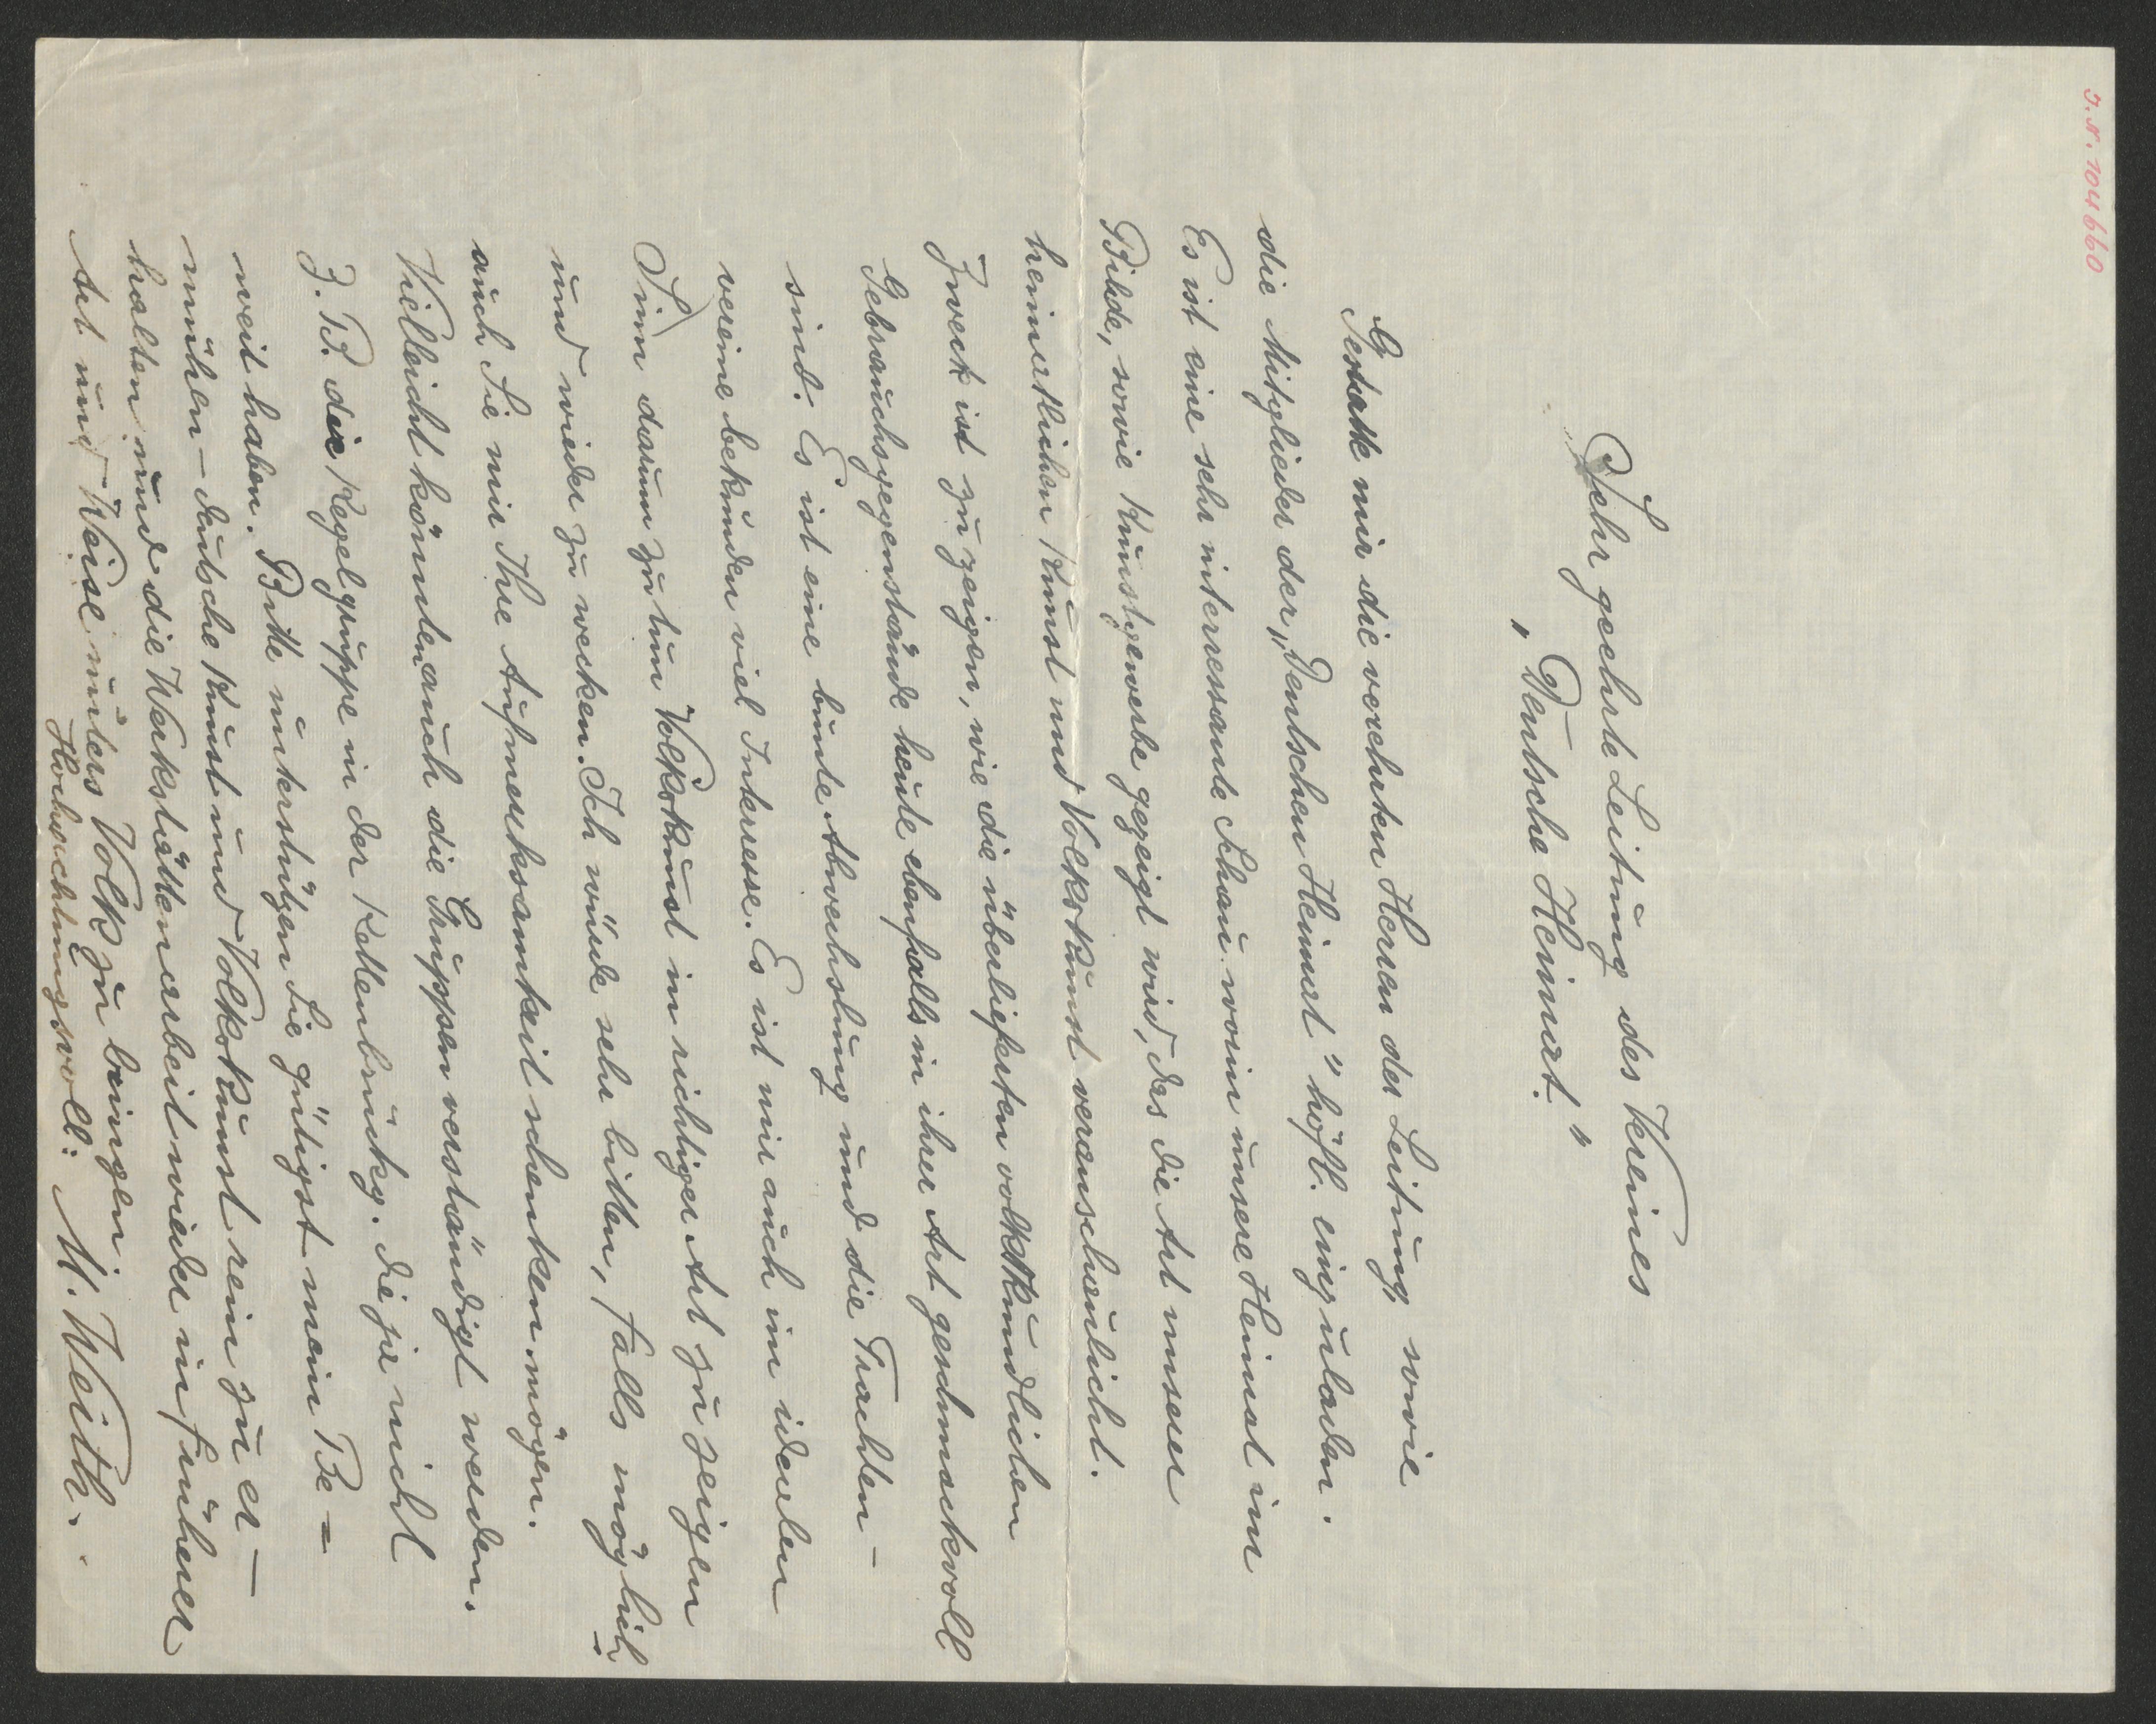 J.N. 104660
Sehr geehrte Leitung des Vereines
„Deutsche Heimat."
Gestatte mir die verehrten Herren der Leitung, sowie
die Mitglieder der „Deutschen Heimat" höfl. einzuladen.
Es ist eine sehr interressante Schau worin unsere Heimat im
Bilde, sowie Kunstgewerbe gezeigt wird, das die Art unserer
heimatlichen Kunst und Volkskunst veranschaulicht.
Zweck ist zu zeigen, wie die überlieferten volkskundlichen
Gebrauchsgegenstände heute ebenfalls in ihrer Art geschmackvoll
sind. Es ist eine bunte Abwechslung und die Trachten-
vereine bekunden viel Interresse. Es ist mir auch im idealen
Sinn darum zu tun Volkskunst in richtiger Art zu zeigen
und wieder zu wecken. Ich würde sehr bitten, falls möglich
auch Sie mir Ihre Aufmerksamkeit schenken mögen.
Vielleicht könnten auch die Gruppen verständigt werden.
z. B. die Kegelgruppe in der Kettenbrückg. die ja nicht
weit haben. Bitte unterstützen Sie gütigst mein Be=
mühen – deutsche Kunst und Volkskunst rein zu er-
halten und die Werkstättenarbeit wieder in früherer
Art und Weise unters Volk zu bringen.
Hochachtungsvoll: M. Weith.